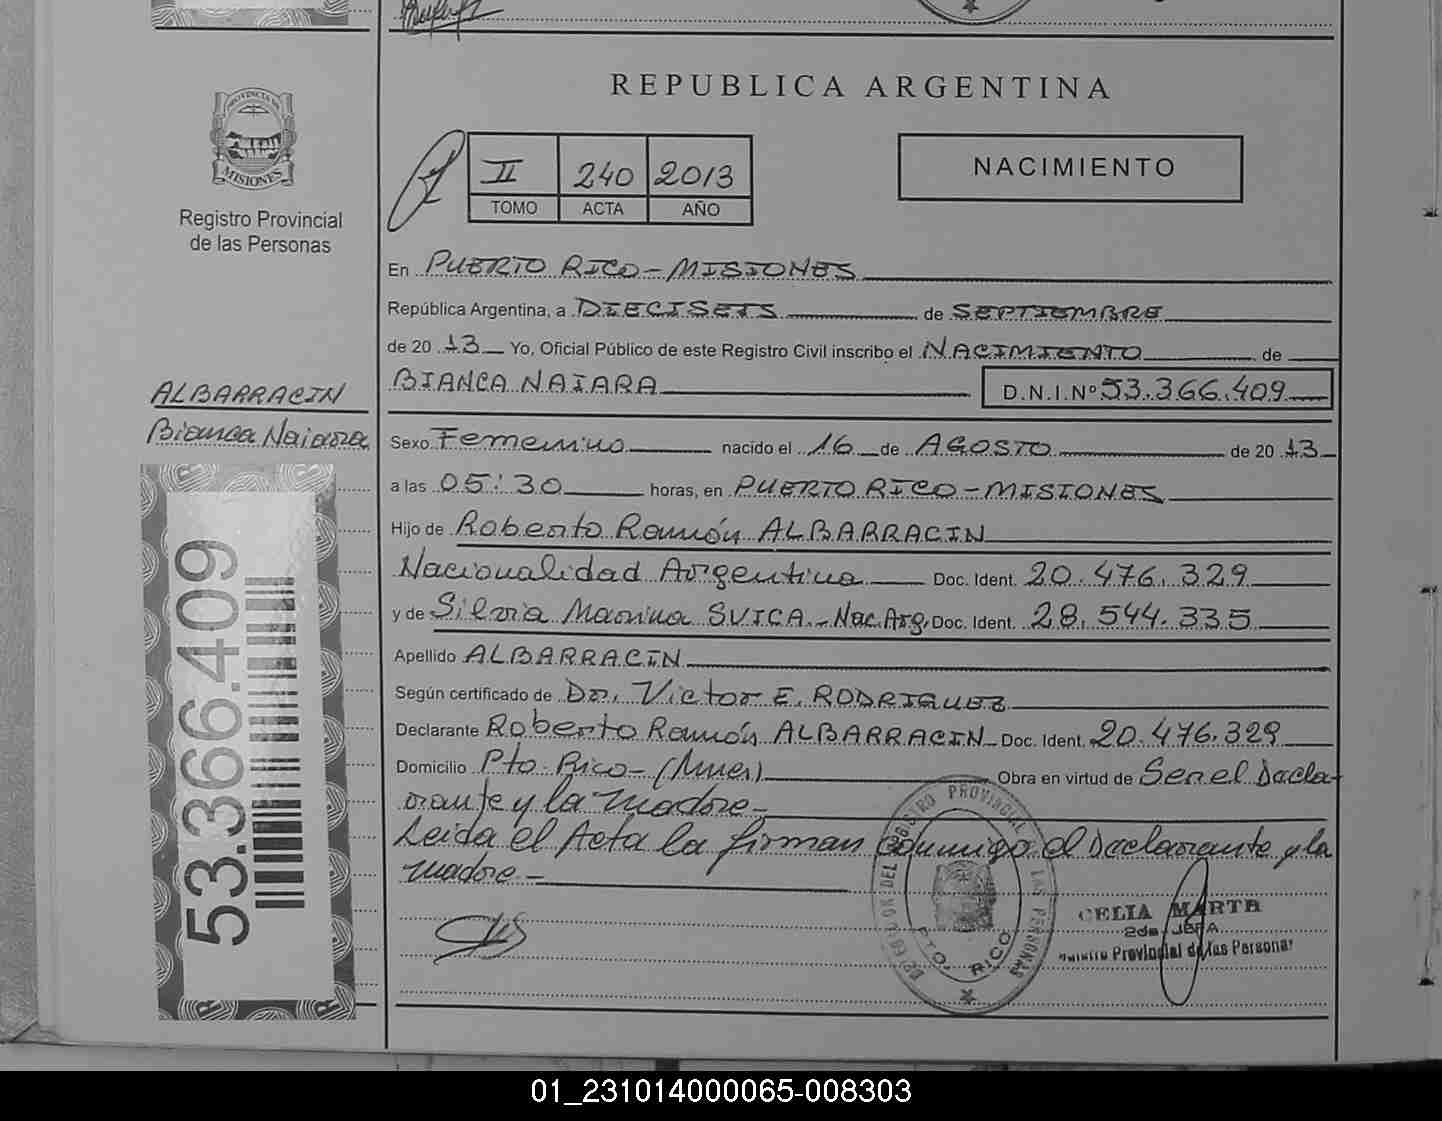 REPUBLICA ARGENTINA
PROVINCIA DE
MISIONES
Registro Provincial
de las Personas
II 240 2013
TOMO ACTA AÑO
NACIMIENTO
En PUERTO RICO - MISIONES
República Argentina, a DIECISEIS de SEPTIEMBRE
de 20 13 Yo, Oficial Público de este Registro Civil inscribo el NACIMIENTO de
BIANCA NAIARA D.N.I.Nº 53.366.409
ALBARRACIN
Bianca Naiara
Sexo Femenino nacido el 16 de AGOSTO de 20 13
a las 05:30 horas, en PUERTO RICO - MISIONES
Hijo de Roberto Ramón ALBARRACIN
Nacionalidad Argentina Doc. Ident. 20.476.329
y de Silvia Marina SVICA.- Nac. Arg. Doc. Ident. 28.544.335
Apellido ALBARRACIN
Según certificado de Dr. Victor E. RODRIGUEZ
Declarante Roberto Ramón ALBARRACIN Doc. Ident. 20.476.329
Domicilio Pto. Rico - (Mnes) Obra en virtud de Ser el Decla-
rante y la madre -
Leida el Acta la firman conmigo el Declarante y la
madre -
53.366.409
REGISTRO PROVINCIAL DE LAS PERSONAS
PTO. RICO
CELIA MARTA
2da. JEFA
Registro Provincial de las Personas
01_231014000065-008303